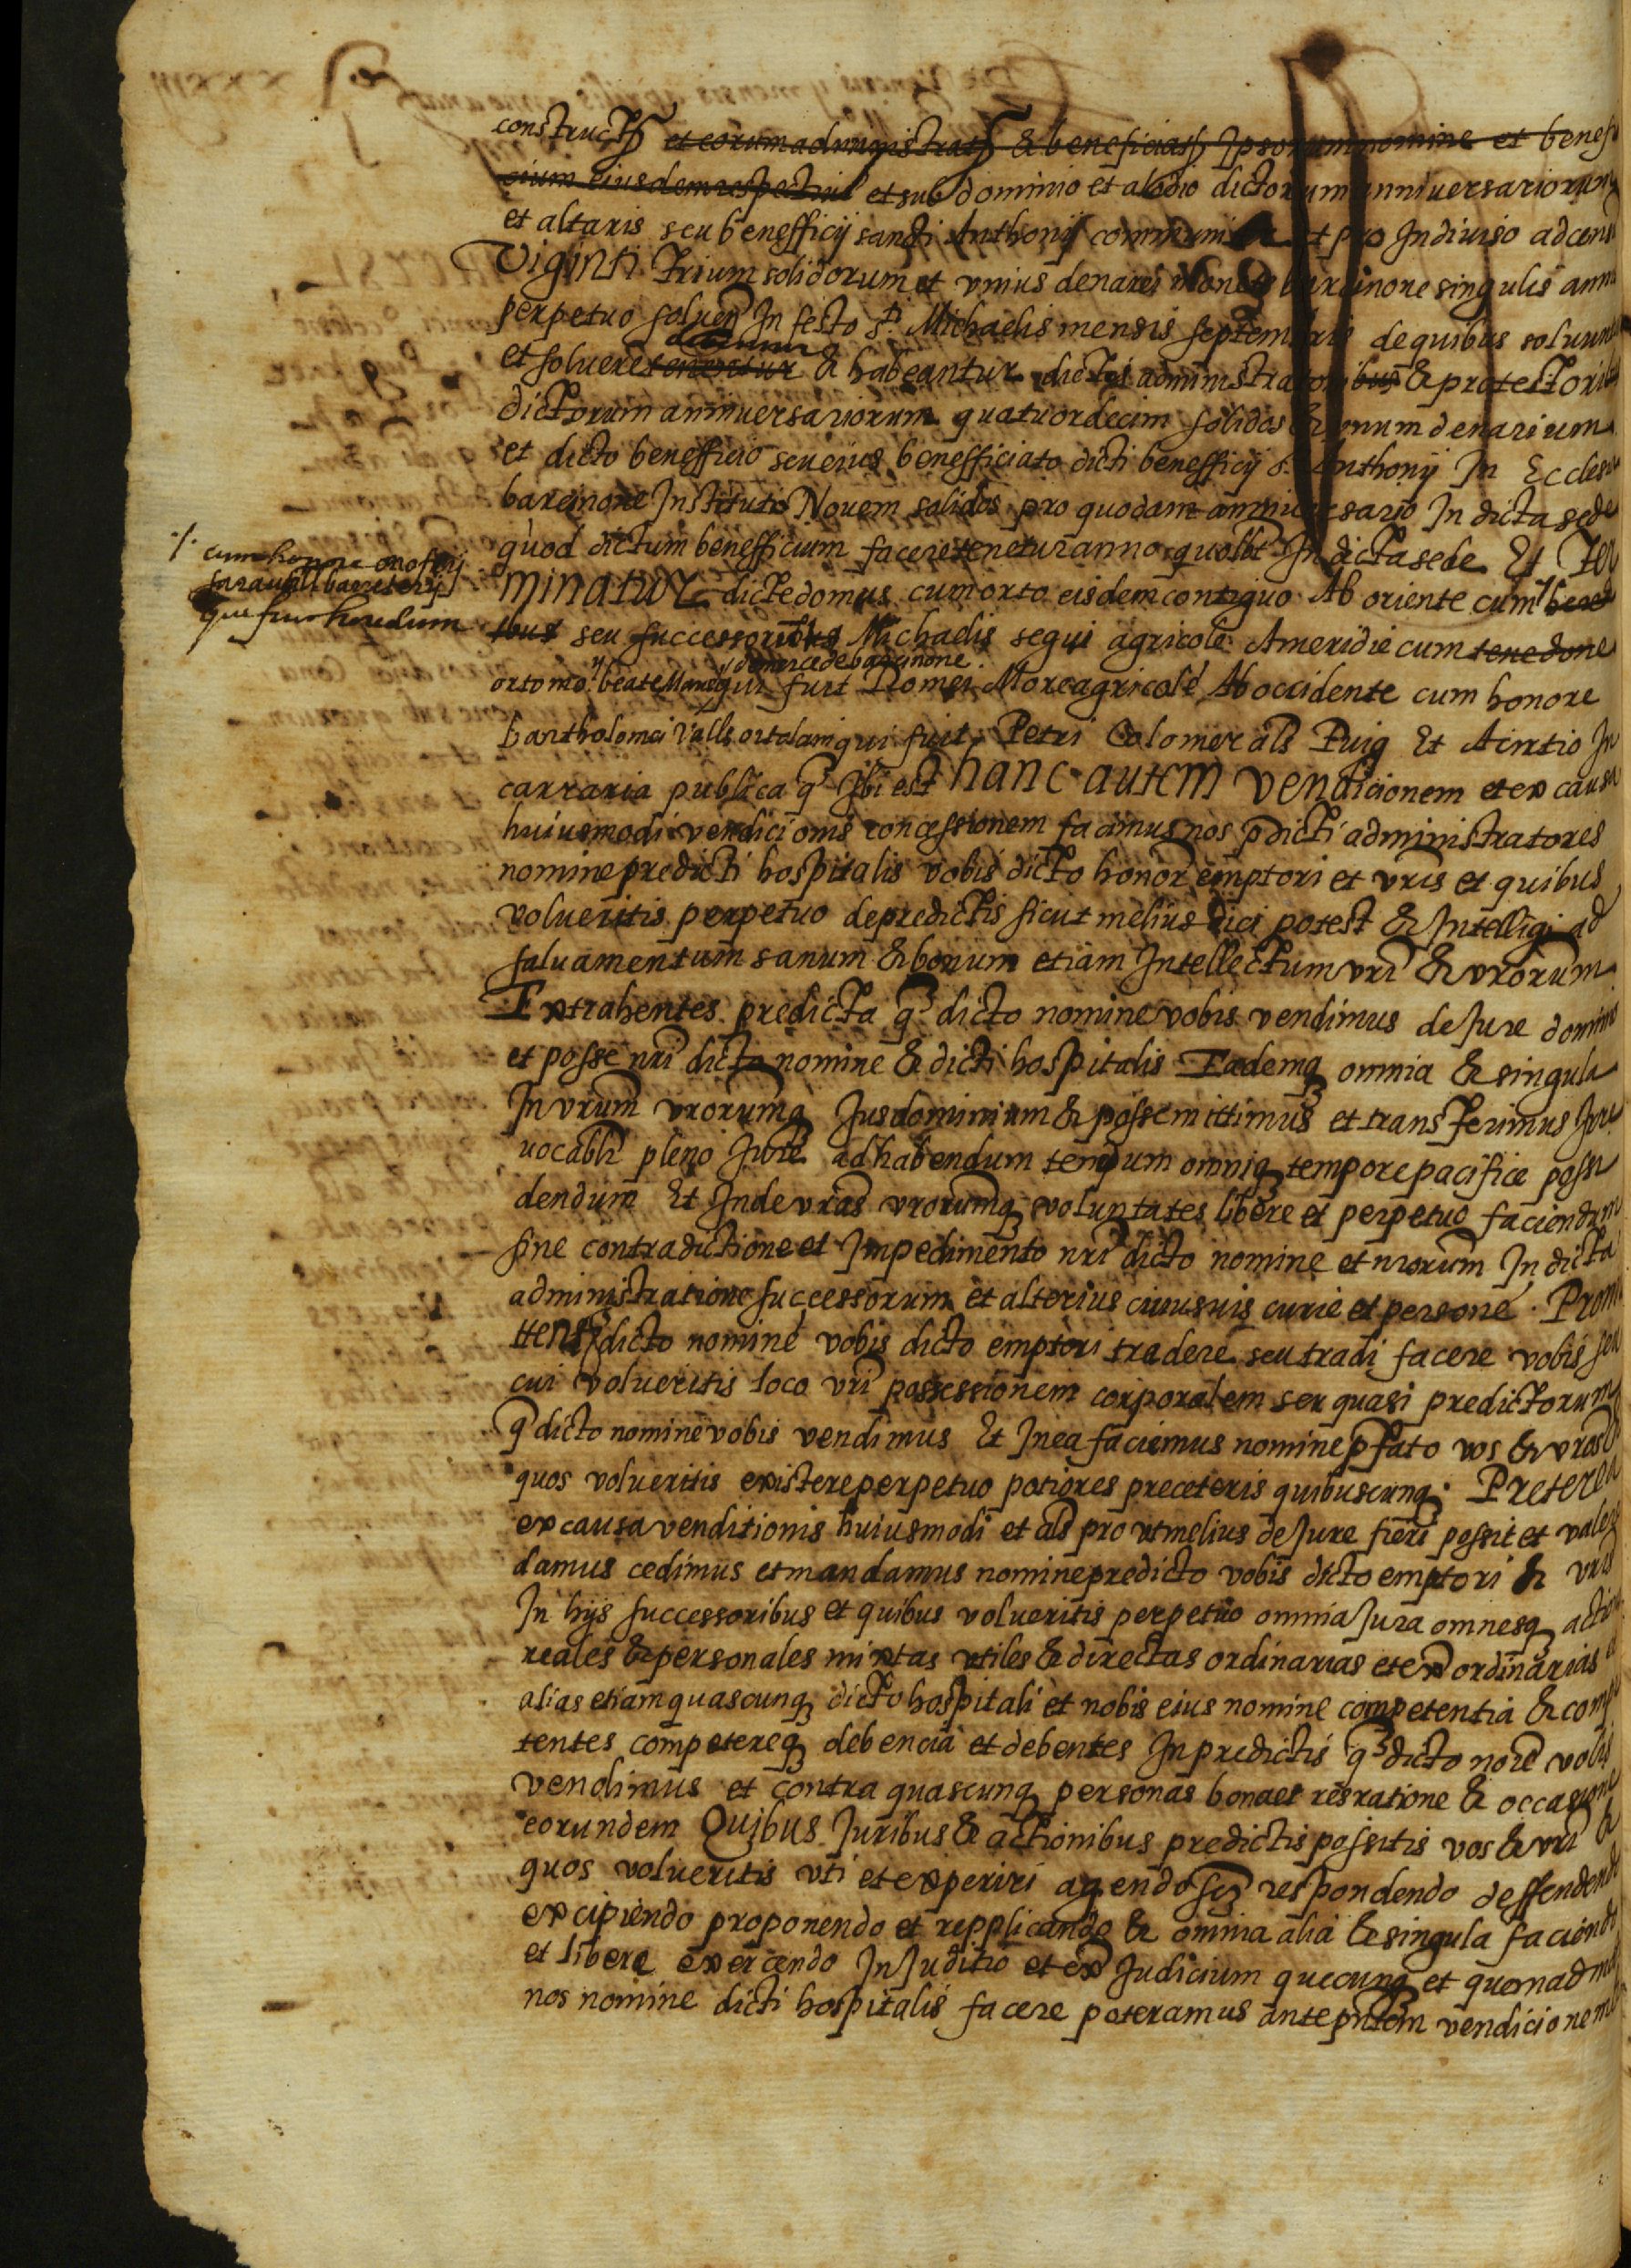 et eorum administrat & beneficiat Ipsorum nomine et benefi
cium eiusdem respectiue et sub dominio et alodio dictorum anniuersariorum
et altaris seu benefficij sancti Anthonij et pro Indiuiso ad cens
Viginti trium solidorum et vnius denarij monete barcinone singulis annis
perpetuo soluend In festo st Michaelis mensis septembris de quibus soluunt
et soluere tenentur & habeantur dictis administratoribus & protectorib
dictorum anniuersariorum quatuordecim solidos & vnum denarium
et dicto benefficio seu eius benefficiato dicti benefficij s. Anthonij In Ecclesia
barcinone Instituto Nouem solidos pro quodam anniuersario In dicta sede
quod dictum benefficium facere tenetur anno quolt In dicta sede Et Ter
./. cum honore onofrij
que fuit
minatur dicte domus cum orto eisdem contiguo Ab oriente cum hered
ibus seu successoribus Michaelis segui agricole A meridie cum tenedone
de mercede barcinone
orto mo beate Marie qui fuit Romei More agricole Ab occidente cum honore
bartholomei Valls ortolani qui fuit Petri Colomer als Puig Et A circio In
carraria publica q Ibi est hanc autem vendicionem et ex causa
huiusmodi vendicionis concessionem facimus nos pdicti administratores
nomine predicti hospitalis vobis dicto honor emptori et vris et quibus
volueritis perpetuo de predictis sicut melius dici potest & Intelligi ad
saluamentum sanum & bonum etiam Intellectum vri & vrorum
Extrahentes predicta q dicto nomine vobis vendimus de Jure dominio
et posse nri dicto nomine & dicti hospitalis Eademq omnia & singula
In vrum vrorumq Jus dominium & posse mittimus et transferimus Irre
uocablr pleno Jure ad habendum tenendum omniq tempore pacifice possi
dendum Et Inde vras vrorumq voluntates libere et perpetuo faciendum
sine contradictione et Impedimento nri dicto nomine et nrorum In dicta
administratione successorum et alterius cuiusuis curie et persone. Promi
ttens dicto nomine vobis dicto emptori tradere seu tradi facere vobis seu
cui volueritis loco vri possessionem corporalem ser quasi predictorum
q dicto nomine vobis vendimus Et In ea faciemus nomine pfato vos & vros &
quos volueritis existere perpetuo potiores pre ceteris quibuscunq. Preterea
ex causa venditionis huiusmodi et als pro vt melius de Jure fieri possit et valere
damus cedimus et mandamus nomine predicto vobis dicto emptori & vris
In hijs successoribus et quibus volueritis perpetuo omnia Jura omnesq action
reales & personales mixtas vtiles & directas ordinarias et exordinarias et
alias etiam quascunq dicto hospitali et nobis eius nomine competentia & compe
tentes competereq debencia et debentes In predictis q dicto noie vobis
vendimus et contra quascunq personas bona et res ratione & occasione
eorundem Quibus Juribus & actionibus predictis possitis vos & vri &
quos volueritis vti et experiri agendo scz respondendo deffendendo
excipiendo proponendo et repplicando & omnia alia & singula faciendo
et libere exercendo In Juditio et ex Judicium quecunq et quemadmod
nos nomine dicti hospitalis facere poteramus ante pntem vendicionem